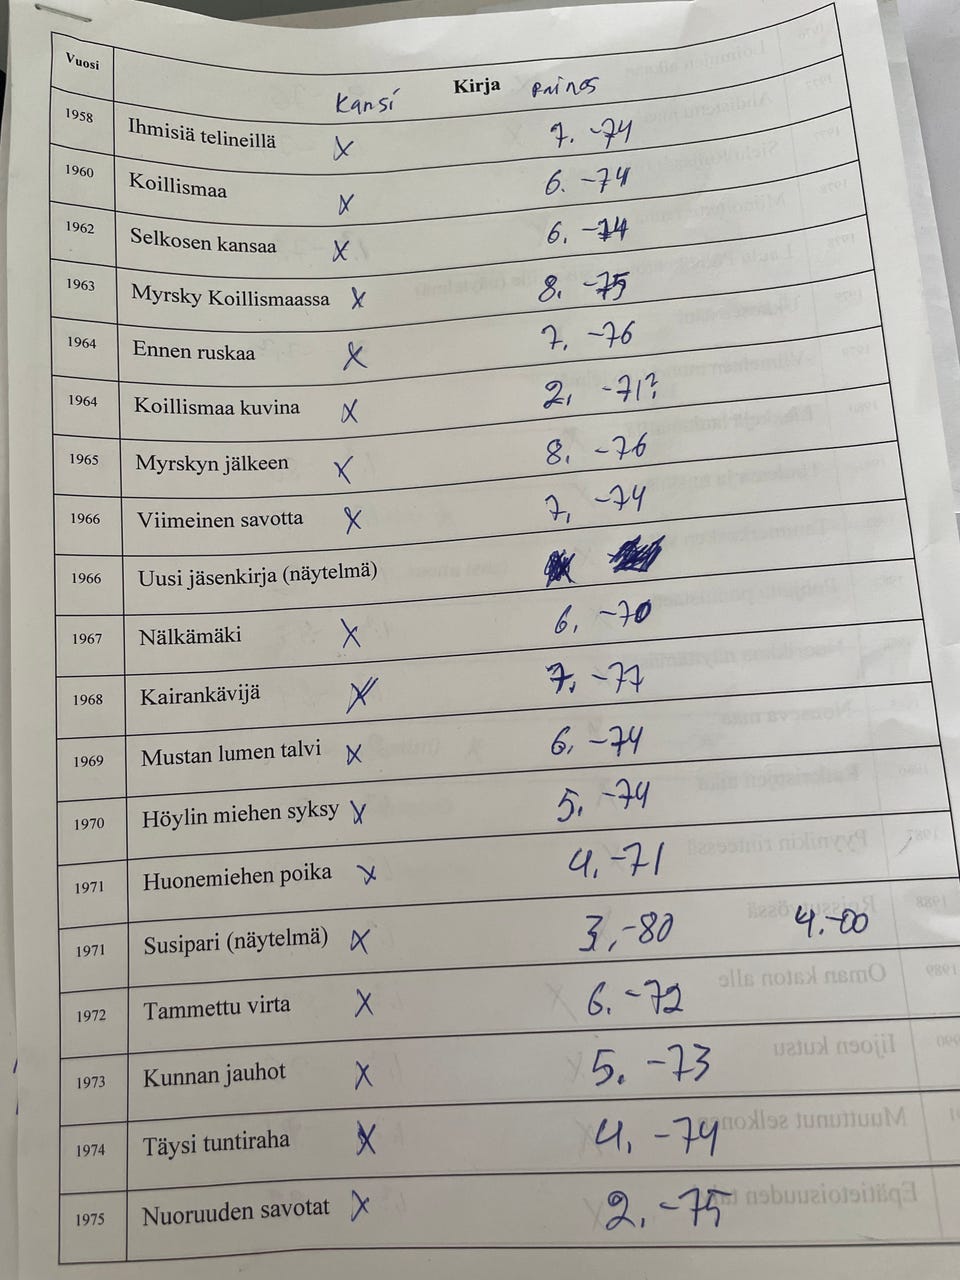 Vuosi Kirja
Kansi Painos
1958 Ihmisiä telineillä X 7. -74
1960 Koillismaa X 6. -74
1962 Selkosen kansaa X 6. -74
1963 Myrsky Koillismaassa X 8. -75
1964 Ennen ruskaa X 7. -76
1964 Koillismaa kuvina X 2. -71?
1965 Myrskyn jälkeen X 8. -76
1966 Viimeinen savotta X 7. -74
1966 Uusi jäsenkirja (näytelmä)
1967 Nälkämäki X 6. -70
1968 Kairankävijä X 7. -77
1969 Mustan lumen talvi X 6. -74
1970 Höylin miehen syksy X 5. -74
1971 Huonemiehen poika X 4. -71
1971 Susipari (näytelmä) X 3. -80 4. -00
1972 Tammettu virta X 6. -72
1973 Kunnan jauhot X 5. -73
1974 Täysi tuntiraha X 4. -74
1975 Nuoruuden savotat X 2. -75